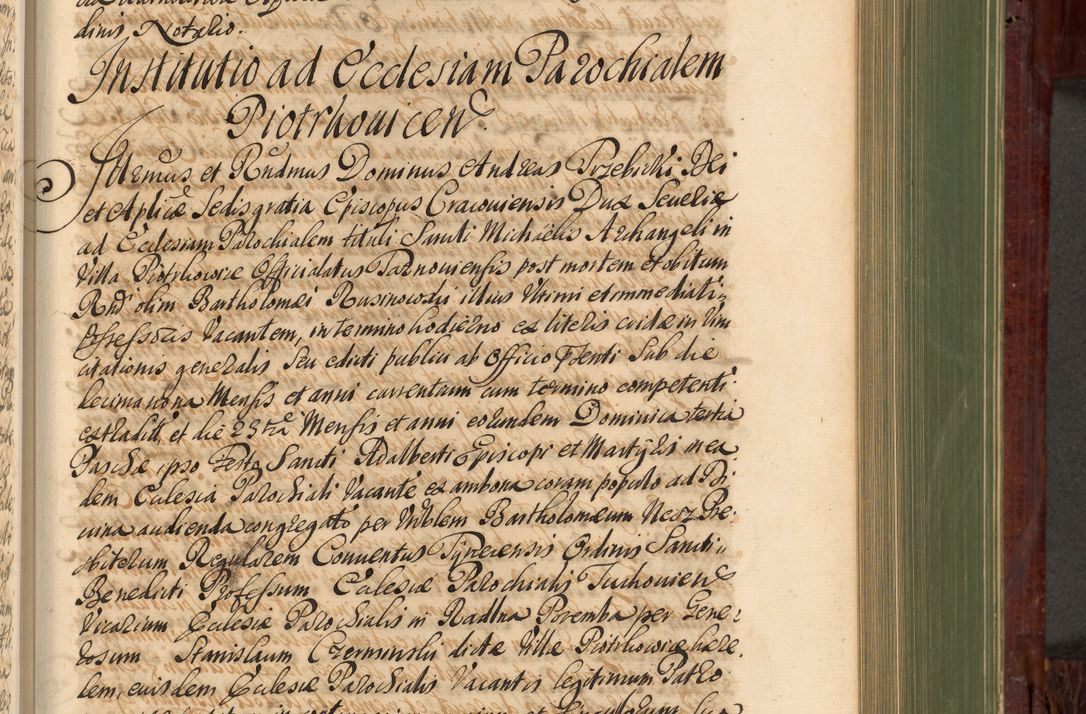 dinis Notario.
Institutio ad Ecclesiam Parochialem
Piotrkouicen.
Illrmus et Rndmus Dominus Andreas Trzebicki Dei
et Aplicæ Sedis gratia Episcopus Cracouiensis Dux Seueriæ
ad Ecclesiam Parochialem tituli Sancti Michaelis Archangeli in
Villa Piotrkowice Officialatus Tarnouiensis post mortem et obitum
Rndi olim Bartholomæi Rusinowski illius Vltimi et immediati
Possessoris Vacantem, in termino hodierno ex literis cridæ in Uim
citationis generalis Seu edicti publici ab Officio Pñti Sub die
decima nona Mensis et anni currentium cum termino competenti
extradit. et die 23tia Mensis et anni eorundem Dominica tertia
Paschæ ipso Festo Sancti Adalberti Episcopi et Martyris in ea
dem Ecclesia Parochiali Vacante ex ambona coram populo ad Di
uina audienda congregato per Vnblem Bartholomæum Presbe
biterum Regularem Conuentus Tynecensis Ordinis Sancti
Benedicti Professum Ecclesiæ Parochialis Tuchouien
Vicarium Ecclesiæ Parochialis in Radlna Poremba per Gene:
rosum Stanislaum Czerminski dictæ Villæ Piotrkowice hære
dem, eiusdem Ecclesiæ Parochialis Vacantis legitimum Patro